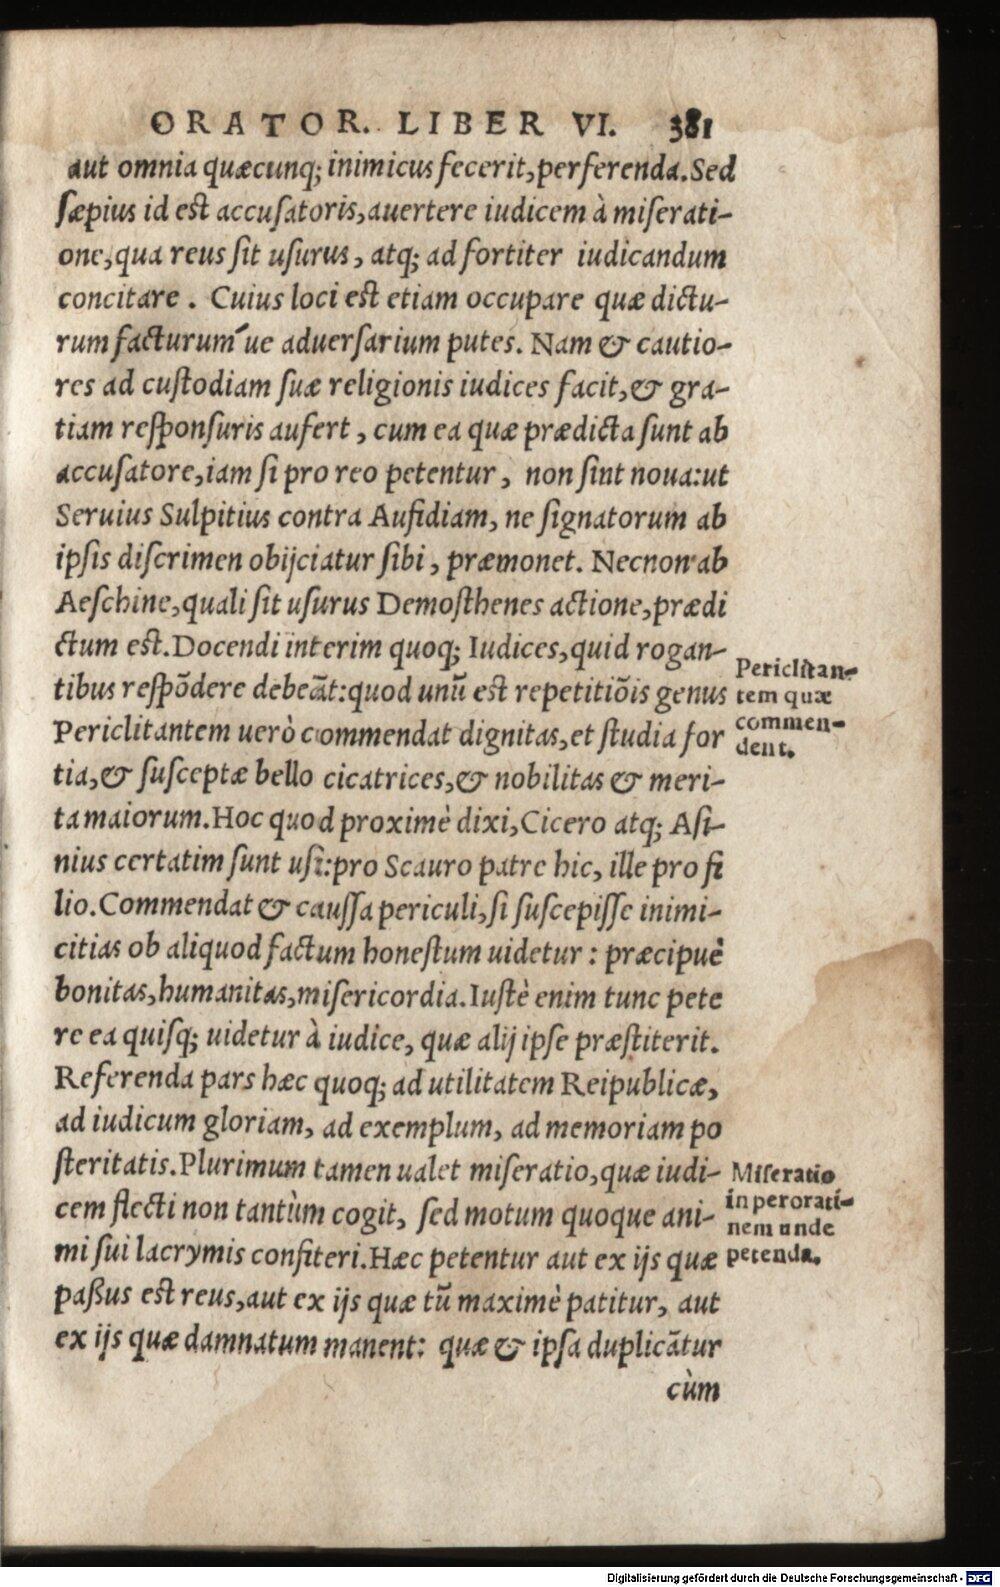 ORATOR. LIBER VI. 381
aut omnia quæcunq; inimicus fecerit, perferenda. Sed
sæpius id est accusatoris, auertere iudicem à miserati-
one, qua reus sit usurus, atq; ad fortiter iudicandum
concitare. Cuius loci est etiam occupare quæ dictu-
rum facturum´ue aduersarium putes. Nam & cautio-
res ad custodiam suæ religionis iudices facit, & gra-
tiam responsuris aufert, cum ea quæ prædicta sunt ab
accusatore, iam si pro reo petentur, non sint noua: ut
Seruius Sulpitius contra Aufidiam, ne signatorum ab
ipsis discrimen obijciatur sibi, præmonet. Necnon ab
Aeschine, quali sit usurus Demosthenes actione, prædi
ctum est. Docendi interim quoq; Iudices, quid rogan-
tibus respōdere debeāt: quod unū est repetitiōis genus
Periclitantem uerò commendat dignitas, et studia for
tia, & susceptæ bello cicatrices, & nobilitas & meri-
ta maiorum. Hoc quod proximè dixi, Cicero atq; Asi-
nius certatim sunt usi: pro Scauro patre hic, ille pro fi
lio. Commendat & caussa periculi, si suscepisse inimi-
citias ob aliquod factum honestum uidetur: præcipuè
bonitas, humanitas, misericordia. Iustè enim tunc pete
re ea quisq; uidetur à iudice, quæ alij ipse præstiterit.
Referenda pars hæc quoq; ad utilitatem Reipublicæ,
ad iudicum gloriam, ad exemplum, ad memoriam po
steritatis. Plurimum tamen ualet miseratio, quæ iudi-
cem flecti non tantùm cogit, sed motum quoque ani-
mi sui lacrymis confiteri. Hæc petentur aut ex ijs quæ
paßus est reus, aut ex ijs quæ tū maximè patitur, aut
ex ijs quæ damnatum manent: quæ & ipsa duplicātur
cùm
Periclitan-
tem quæ
commen-
dent.
Miseratio
in perorati-
nem unde
petenda.
Digitalisierung gefördert durch die Deutsche Forschungsgemeinschaft - DFG